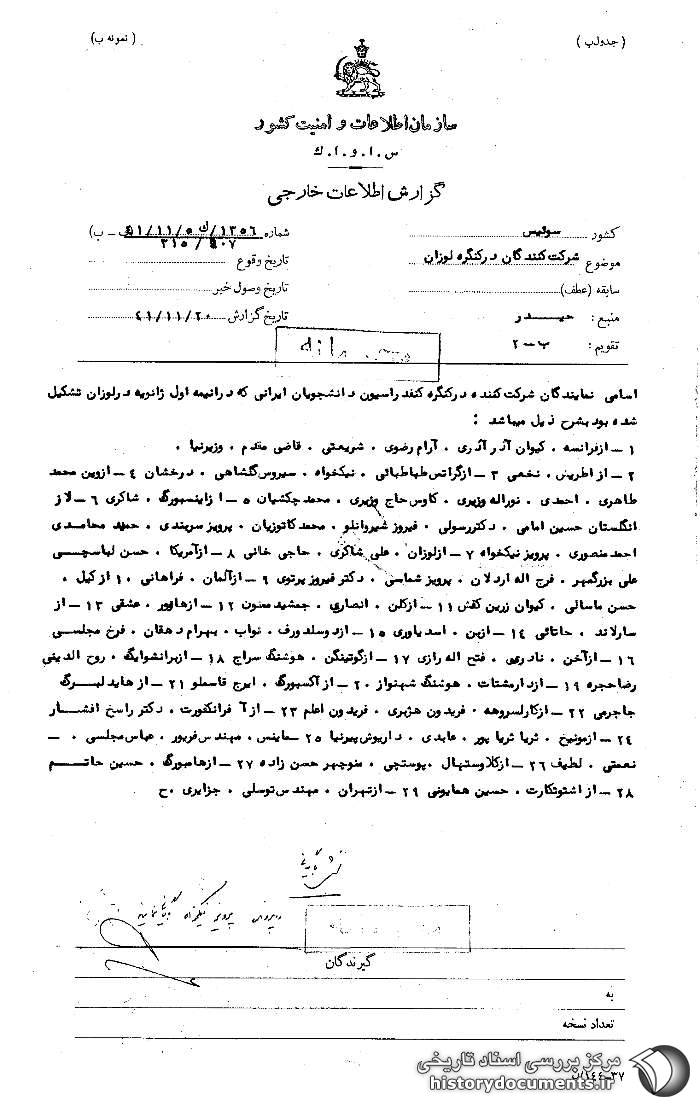 ( جدول پ )
( نمونه ب)
سازمان اطلاعات و امنیت کشور
س . ا . و . ا . ك
گزارش اطلاعات خارجی
کشور سوئیس
شماره
موضوع شرکت کنندگان در کنگره لوزان
تاریخ وقوع
سابقه (عطف)
تاریخ وصول خبر
منبع: حیدر
تاریخ گزارش ۴۱/۱۱/۲۰
تقویم: ب-۲
اسامی نمایندگان شرکت کننده در کنگره کنفدراسیون دانشجویان ایرانی که در انیمه اول ژانویه در لوزان تشکیل
شده بود بشرح ذیل میباشد :
۱ - از فرانسه ، کیوان آذر آذری . آرام رضوی ، شریعتی . قاضی مقدم ، وزیرنیا .
۲ - از اطریش ، نخعی ۳ - از گراتس طباطبائی . نیکخواه ، سیروس گلشاهی . درخشان ۴ - از وین محمد
طاهری . احمدی . نوراله وزیری . کاوس حاج وزیری ، محمد چکشیان ۵ - از اینسبورگ ، شاکری ۶ - از
انگلستان حسین امامی . دکتر رسولی . فیروز شیروانلو . محمد کاتوزیان - پرویز سربندی . حمید محامدی
احمد منصوری ، پرویز نیکخواه ۷ - از لوزان ، علی شاکری . حاجی خانی ۸ - از آمریکا . حسن لباسچی
علی بزرگمهر . فرج اله اردلان . پرویز شماسی . دکتر فیروز پرتوی ۹ - از آلمان . فراهانی ۱۰ از کیل .
حسن ماسالی . کیوان زرین کفش ۱۱ - از کلن . انصاری . جمشید ممنون ۱۲ - از هانور . عشقی ۱۳ - از
سارلاند . حاتائی ۱۴ - از بن . اسد یاوری ۱۵ - از دوسلدورف . نواب . بهرام دهقان . فرخ مجلسی
۱۶ - از آخن . نادری . فتح اله رازی ۱۷ - از گوتینگن . هوشنگ سراج ۱۸ - از برانشوایگ . روح الدینی
رضا حجره ۱۹ - از دارمشتات . هوشنگ شهنواز ۲۰ - از آکسبورگ . ایرج قاسملو ۲۱ - از هایدلبرگ
جاجرمی ۲۲ - از کارلسروهه . فریدون هژبری . فریدون اعلم ۲۳ - از آ فرانکفورت . دکتر راسخ افشار
۲۴ - از مونیخ . ثریا ثریا پور . عابدی . داریوش پیرنیا ۲۵ - ماینس . مهندس فریور . عباس مجلسی . -
نعمتی . لطیف ۲۶ - از کلاوستهال . پوستچی . منوچهر حسن زاده ۲۷ - از هامبورگ . حسین حاتم
۲۸ - از اشتوتکارت . حسین همایونی ۲۹ - از تهران . مهندس توسلی . جزایری . ح
گیرندگان
به
تعداد نسخه
مرکز بررسی اسناد تاریخی
historydocuments.ir